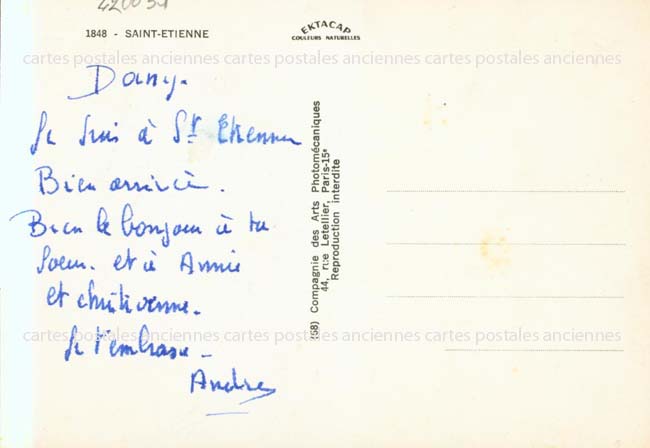 420054
1848 - SAINT-ETIENNE
EKTACAP
COULEURS NATURELLES
cartes postales anciennes cartes postales anciennes cartes postales anciennes
Dany.
Je suis à St Etienne
Bien arrivée.
Bien le bonjour à ta
soeur. et à Annie
et christienne.
Je t'embrasse -
Andrée
(68) Compagnie des Arts Photomécaniques
44, rue Letellier, Paris-15e
Reproduction interdite
cartes postales anciennes cartes postales anciennes cartes postales anciennes